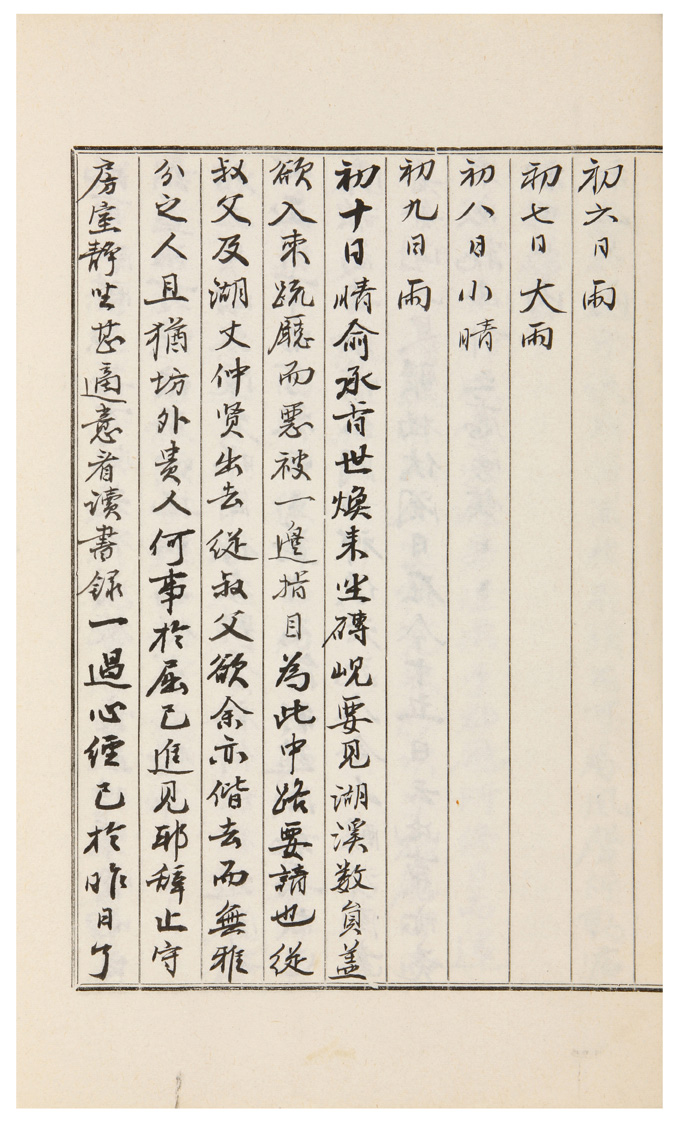 初六日雨
初七日大雨
初八日小晴
初九日雨
初十日晴俞承旨世煥来坐磚峴要見湖溪数員盖
欲入束䟽廳而惡被一邊指目為此中路要請也從
叔父及湖丈仲贤出去從叔父欲余亦偕去而無雅
分之人且猶坊外贵人何事於屈己進見耶辭止守
房室靜坐甚適意看读書録一過心經已於昨日了